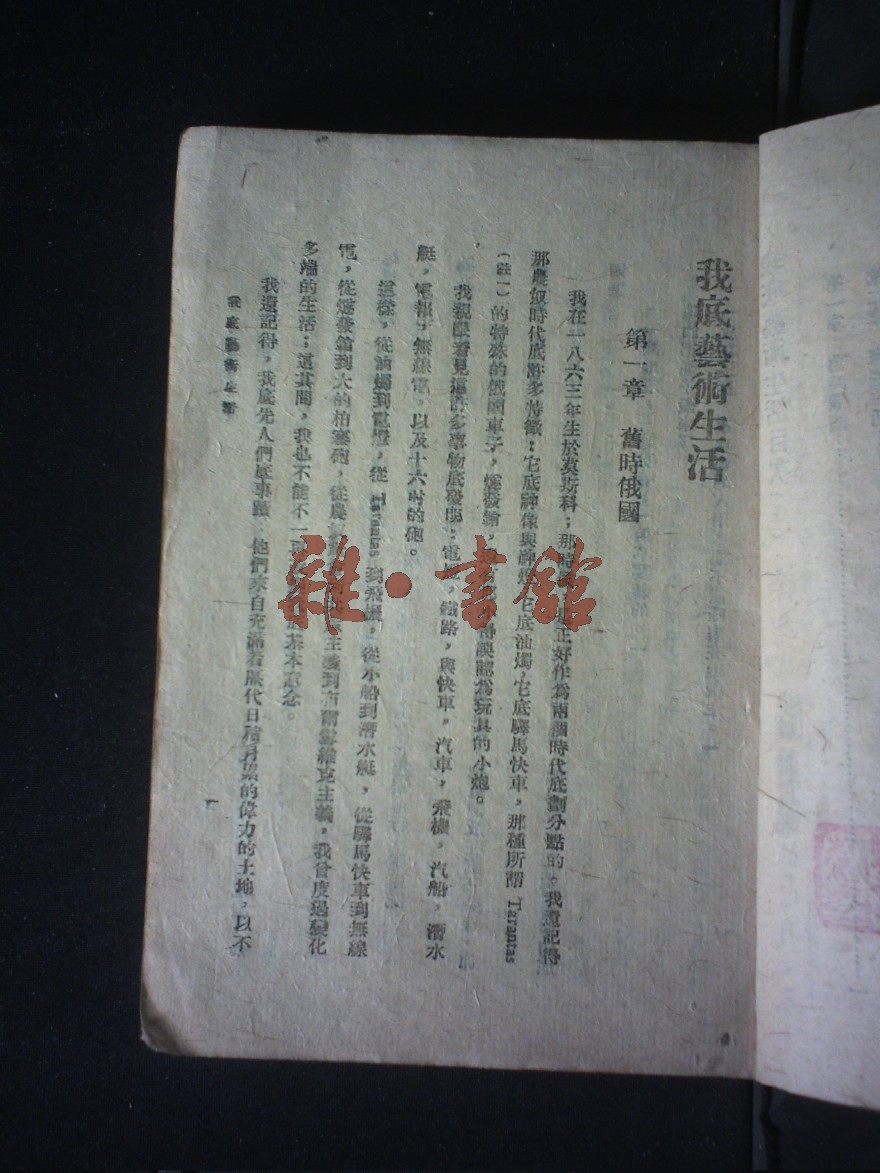 我底藝術生活
第一章 舊時俄國
我在一八六三年生於莫斯科；那時 正好作為兩個時代底劃分點的。我還記得
那農奴時代底許多特徵：它底神像與 它底油燭，它底驛馬快車，那種所謂 Tarantas
（註一）的特殊的俄國車子， 誤認為玩具的小炮。
我親眼看見這許多事物底發明：電燈，鐵路，與快車，汽車，飛機，汽船，潛水
艇，電報，無線電，以及十六吋的砲。
這樣，從油燭到電燈，從 Tarantas 到飛機，從小船到潛水艇，從驛馬快車到無線
電，從燧發 到大的柏塞砲，從農 主義到布爾塞維克主義，我曾度過變化
多端的生活；這其間，我也不能不一再 基本意念。
我還記得，我底先人們底事蹟：他們來自充滿着歷代日積月累的偉力的土地，以不
我底藝術生活
雜·書館